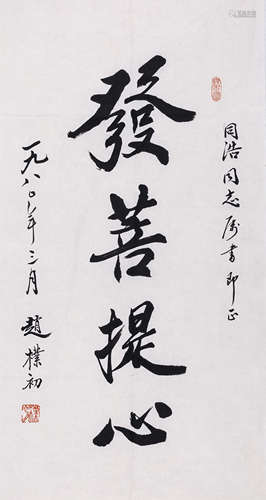 同浩同志属書即正
發菩提心
一九八〇年三月 趙樸初